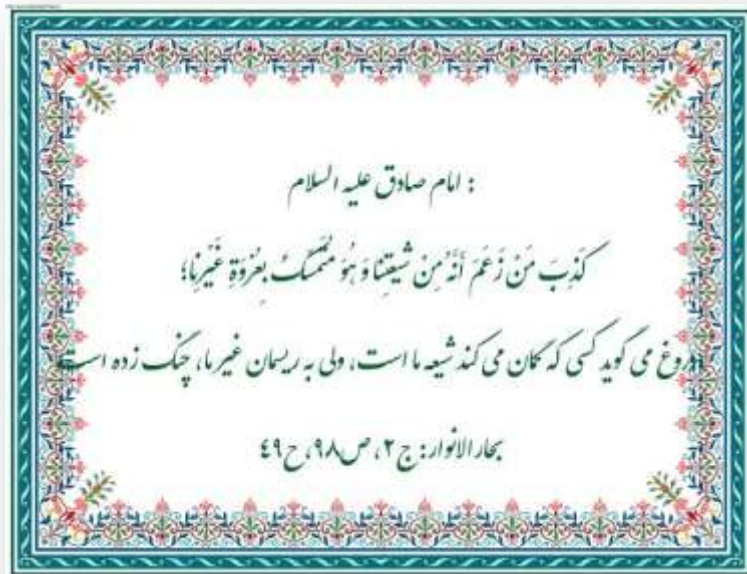 امام صادق علیه السلام :
كَذِبَ مَنْ زَعَمَ أَنَّهُ مِنْ شيعَتِنا وَ هُوَ مُتَمَسِّكٌ بِعُرْوَةِ غَيْرِنا؛
دروغ می گوید کسی که گمان می کند شیعه ما است، ولی به ریسمان غیر ما، چنگ زده است
بحار الانوار: ج ۲، ص ۹۸، ح ۴۹